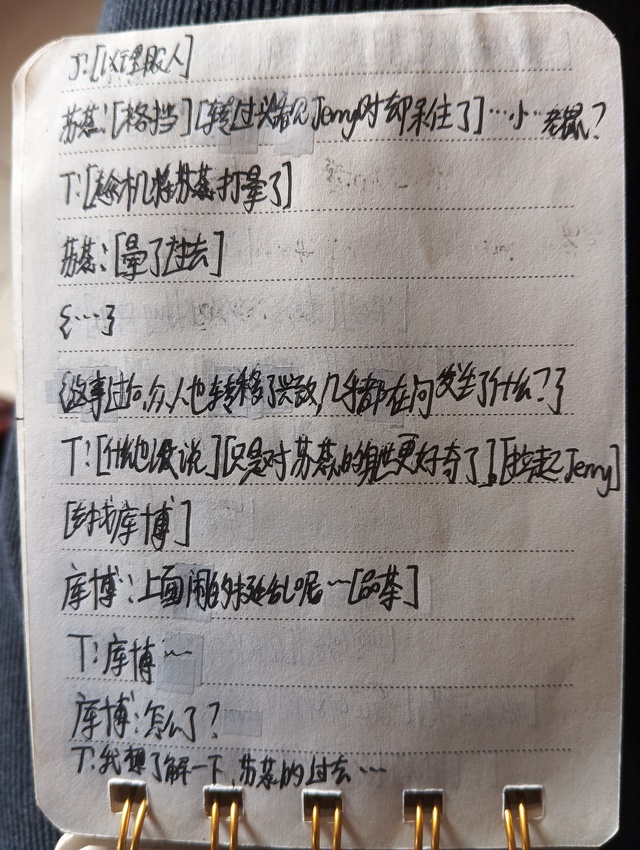 J:[以理服人]
苏蕊:[格挡][转过头看见Jerry时却呆住了]…小…老鼠?
T:[趁机将苏蕊打晕了]
苏蕊:[晕了过去]
{…}
{这事过后,众人也转移了兴致,几乎都在问发生了什么?}
T:[什么也没说][只是对苏蕊的身世更好奇了][拉起Jerry]
[去找库博]
库博:上面闹的挺乱呢~[品茶]
T:库博~
库博:怎么了?
T:我想了解一下,苏蕊的过去…